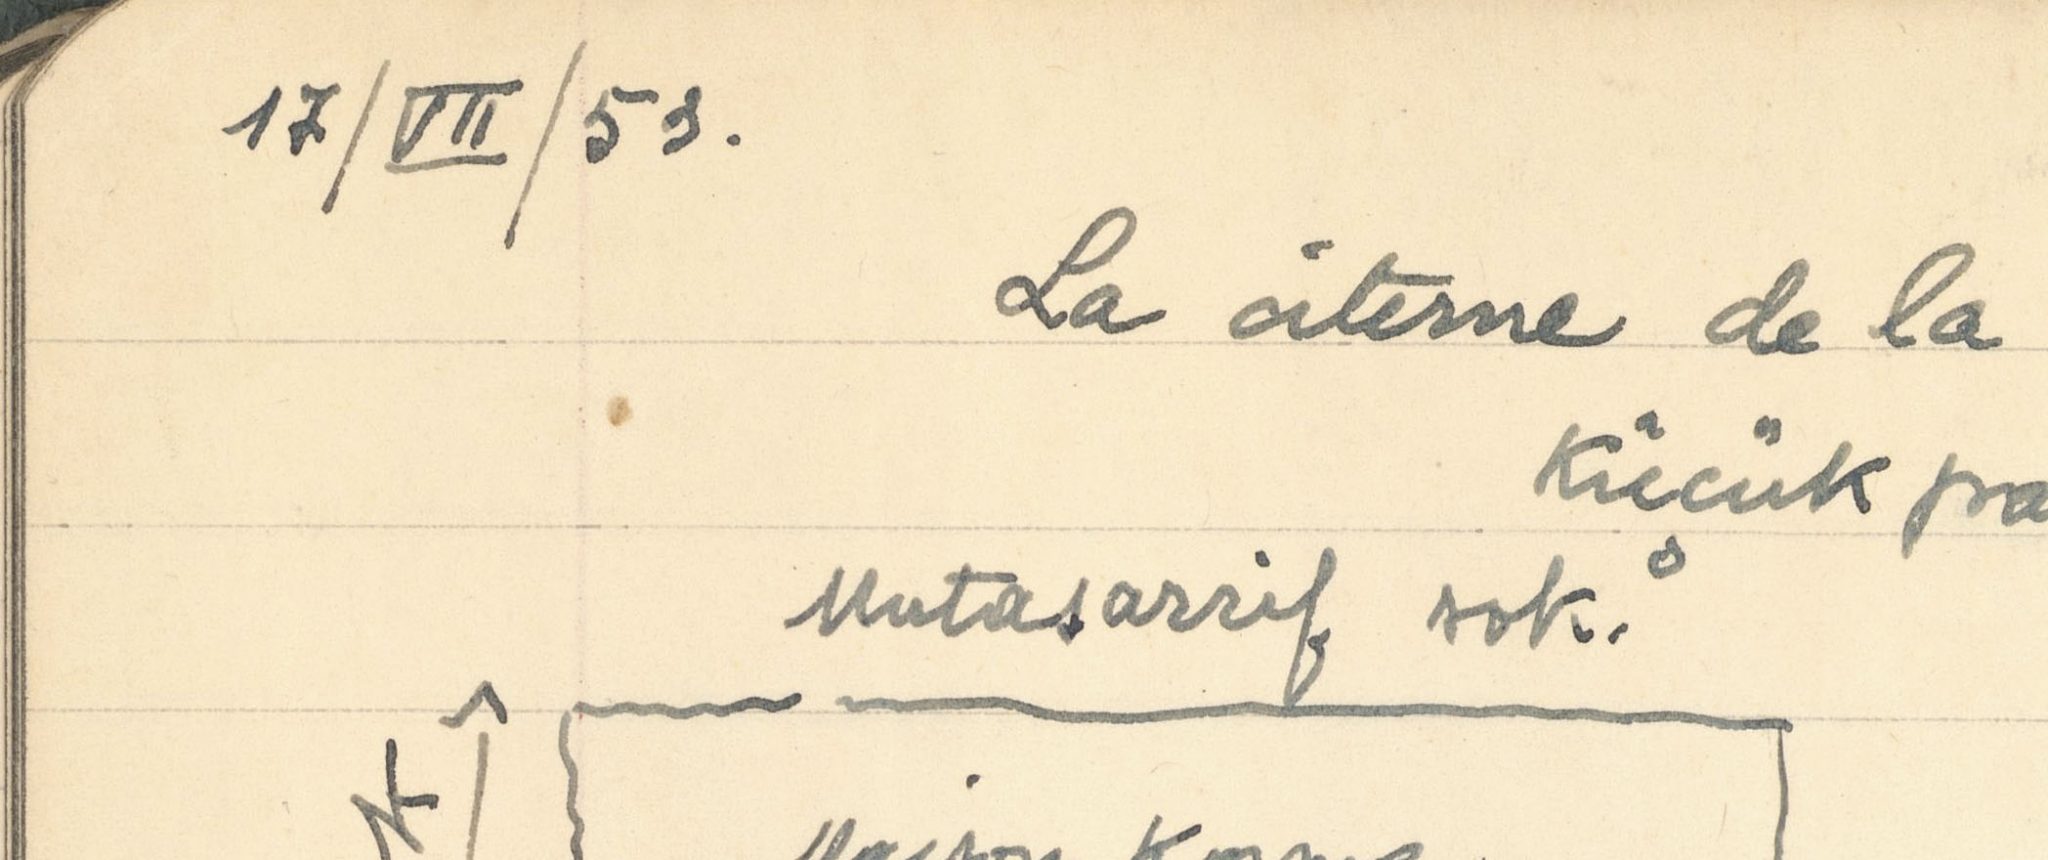 17/VII/53.
La citerne de la
Kücük
Mutasarrif sok.
Maison